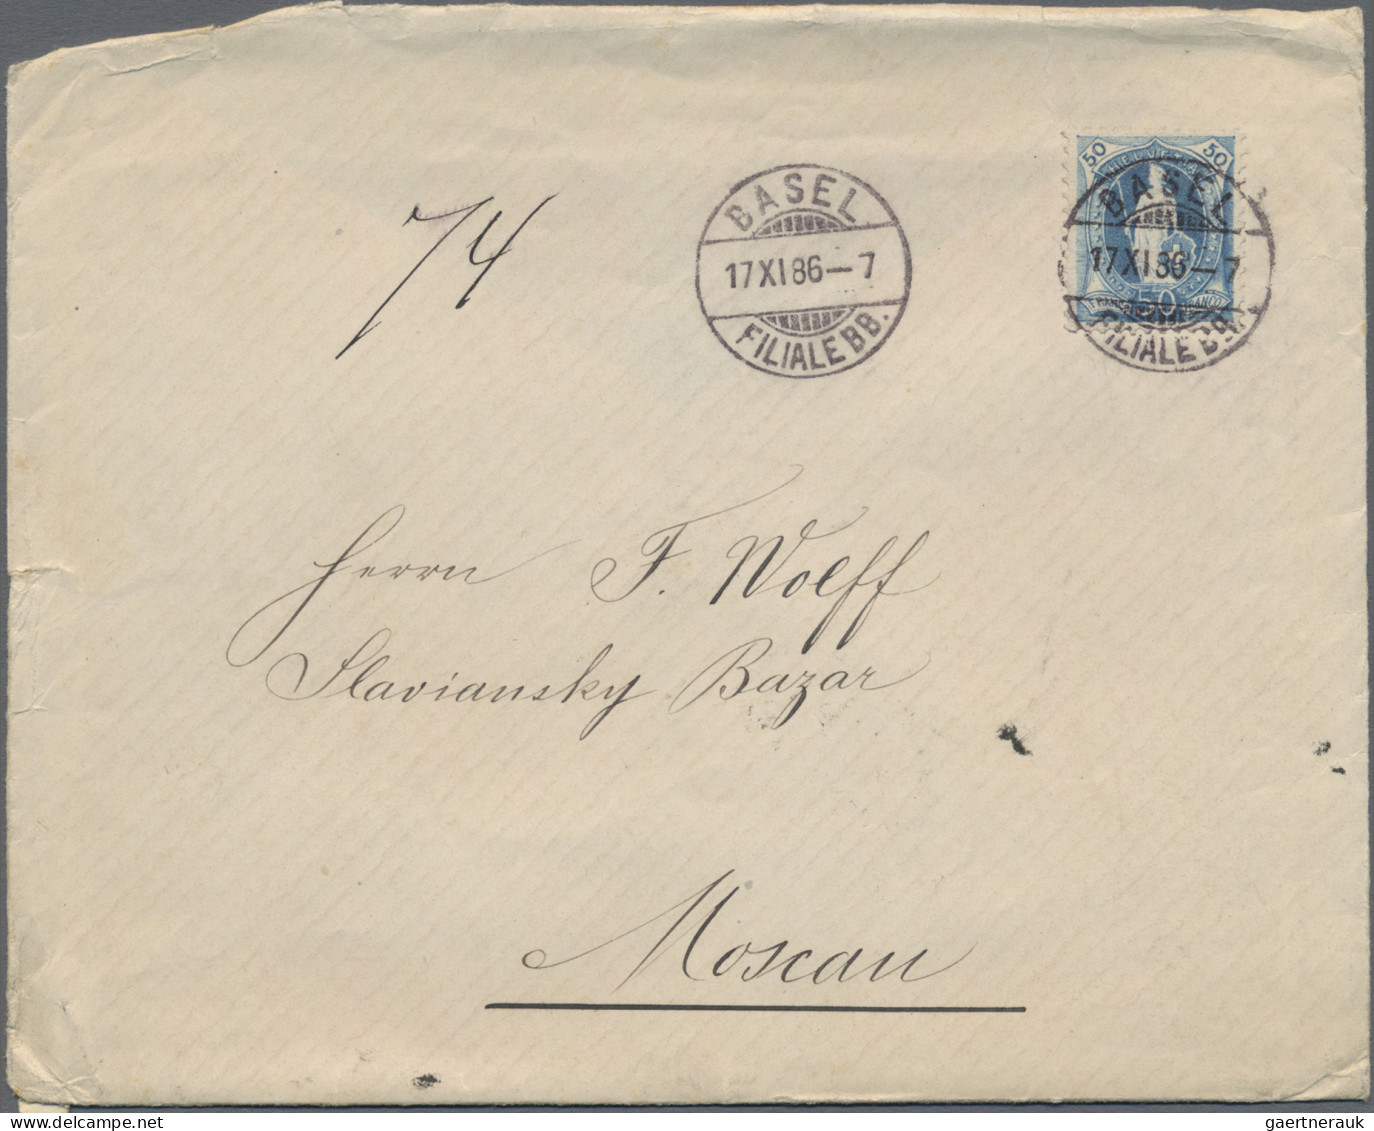 50 50
HELVETIA
FRANCO 50 FRANCO
BASEL
17 XI 86—7
FILIALE BB.
BASEL
17 XI 86—7
FILIALE BB.
74
Herrn F. Wolff
Slaviansky Bazar
Moscau
gaertnerauk